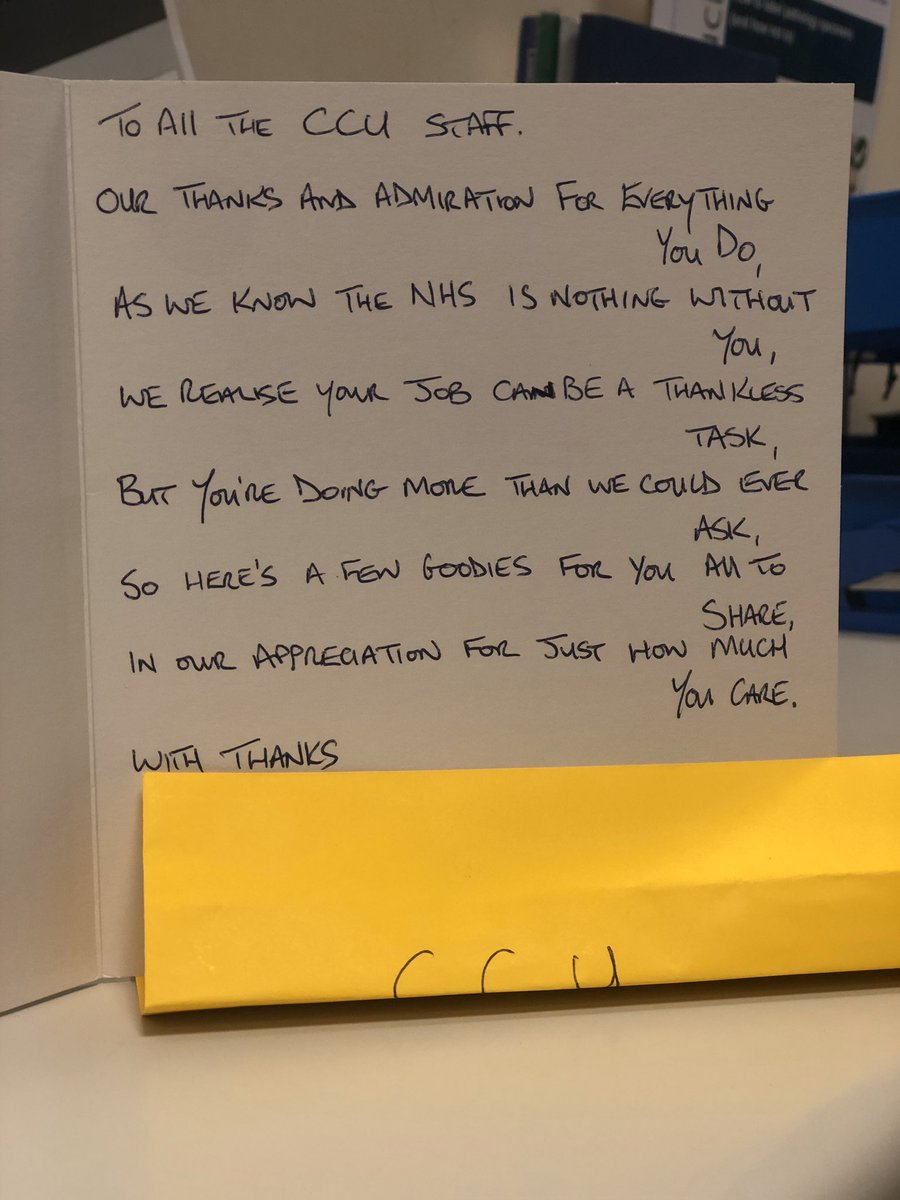 TO All THE CCU STAFF.
OUR THANKS AND ADMIRATION FOR EVERYTHING
YOU DO,
AS WE KNOW THE NHS IS NOTHING WITHOUT
YOU,
WE REALISE YOUR JOB CAN BE A THANKLESS
TASK,
BUT YOU'RE DOING MORE THAN WE COULD EVER
ASK,
SO HERE'S A FEW GOODIES FOR YOU All TO
SHARE,
IN OUR APPRECIATION FOR JUST HOW MUCH
YOU CARE.
WITH THANKS
CCU